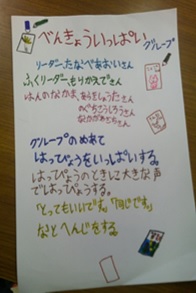 べんきょういっぱい
グループ
リーダー、たなべあおいさん
ふくリーダー、もりかえでさん
はんのなかま、あらきしゅうたさん
のぐちこうしろうさん
なかがわさちさん
グループのめあて
はっぴょうをいっぱいする。
はっぴょうのときに大きな声
でしはっぴょうする。
「とってもいいです。」「同じです」
などへんじをする。